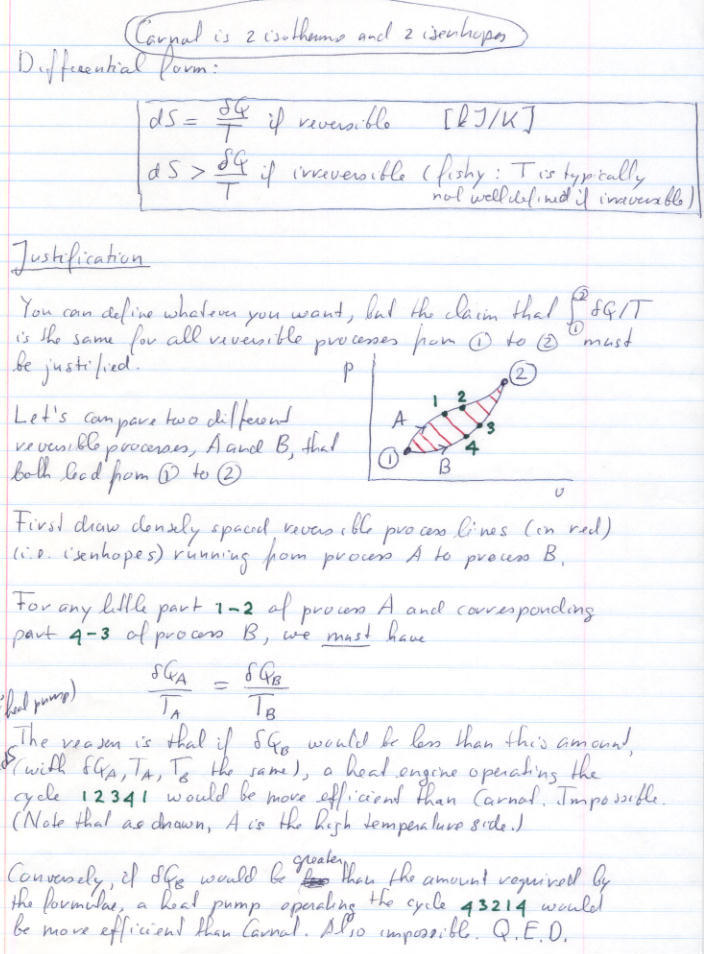 Carnal is 2 isotherms and 2 isenhopes
Differential form:
dS = δQ/T if reversible [kJ/K]
dS > δQ/T if irreversible (fishy: T is typically
not well defined if irreversible)
Justification
You can define whatever you want, but the claim that ∫①② δQ/T
is the same for all reversible processes from ① to ② must
be justified.
P
②
1 2
A
3
4
①
B
υ
Let's compare two different
reversible processes, A and B, that
both lead from ① to ②
First draw densely spaced reversible process lines (in red)
(i.e. isenhopes) running from process A to process B.
For any little part 1-2 of process A and corresponding
part 4-3 of process B, we must have
δQA/TA = δQB/TB
heat pump)
The reason is that if δQB would be less than this amount,
(with δQA, TA, TB the same), a heat engine operating the
cycle 12341 would be more efficient than Carnot. Impossible.
(Note that as drawn, A is the high temperature side.)
Conversely, if δQB would be greater than the amount required by
the formulae, a heat pump operating the cycle 43214 would
be more efficient than Carnot. Also impossible. Q.E.D.